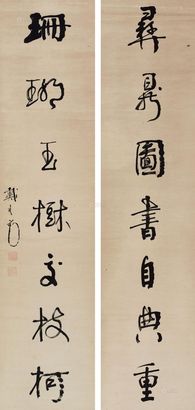 彝鼎圖書自典重
珊瑚玉樹交枝柯
戴